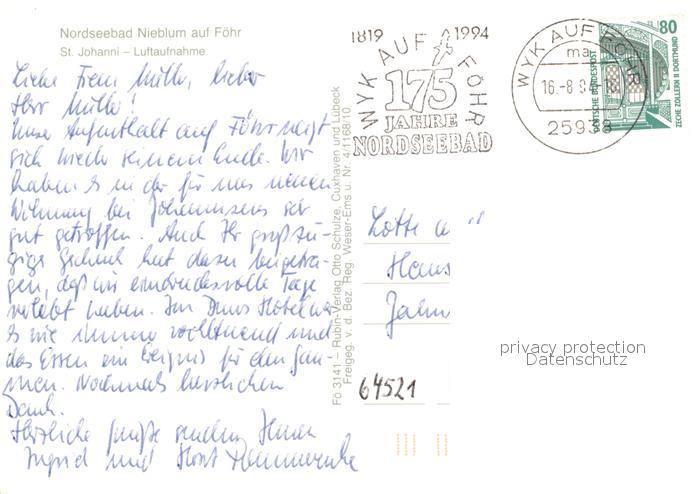 Nordseebad Nieblum auf Föhr
St. Johanni – Luftaufnahme
Liebe Frau Müller, lieber
Herr Müller!
Unser Aufenthalt auf Föhr neigt
sich wieder seinem Ende. Wir
haben es in der für uns neuen
Wohnung bei Johannsens sehr
gut getroffen. Auch Ihr großzü-
giges Geschenk hat dazu beigetra-
gen, daß wir eindrucksvolle Tage
verlebt haben. Im Duus Hotel war
es wie immer wohltuend und
das Essen ein Ereignis für den Gau-
men. Nochmals herzlichen
Dank.
Herzliche Grüße senden Ihnen
Ingrid und Horst
Fö 3141 Rubin-Verlag Otto Schulze, Cuxhaven und Lübeck
Freigeg. v. d. Bez. Reg. Weser-Ems u. Nr. 4/1168/10
1819 1994
WYK AUF FÖHR
175
JAHRE
NORDSEEBAD
WYK AUF FÖHR
ma
16.-8.94-18
25938
80
DEUTSCHE BUNDESPOST
ZECHE ZOLLERN II DORTMUND
Lotte
Haus
Jahn
64521
privacy protection
Datenschutz